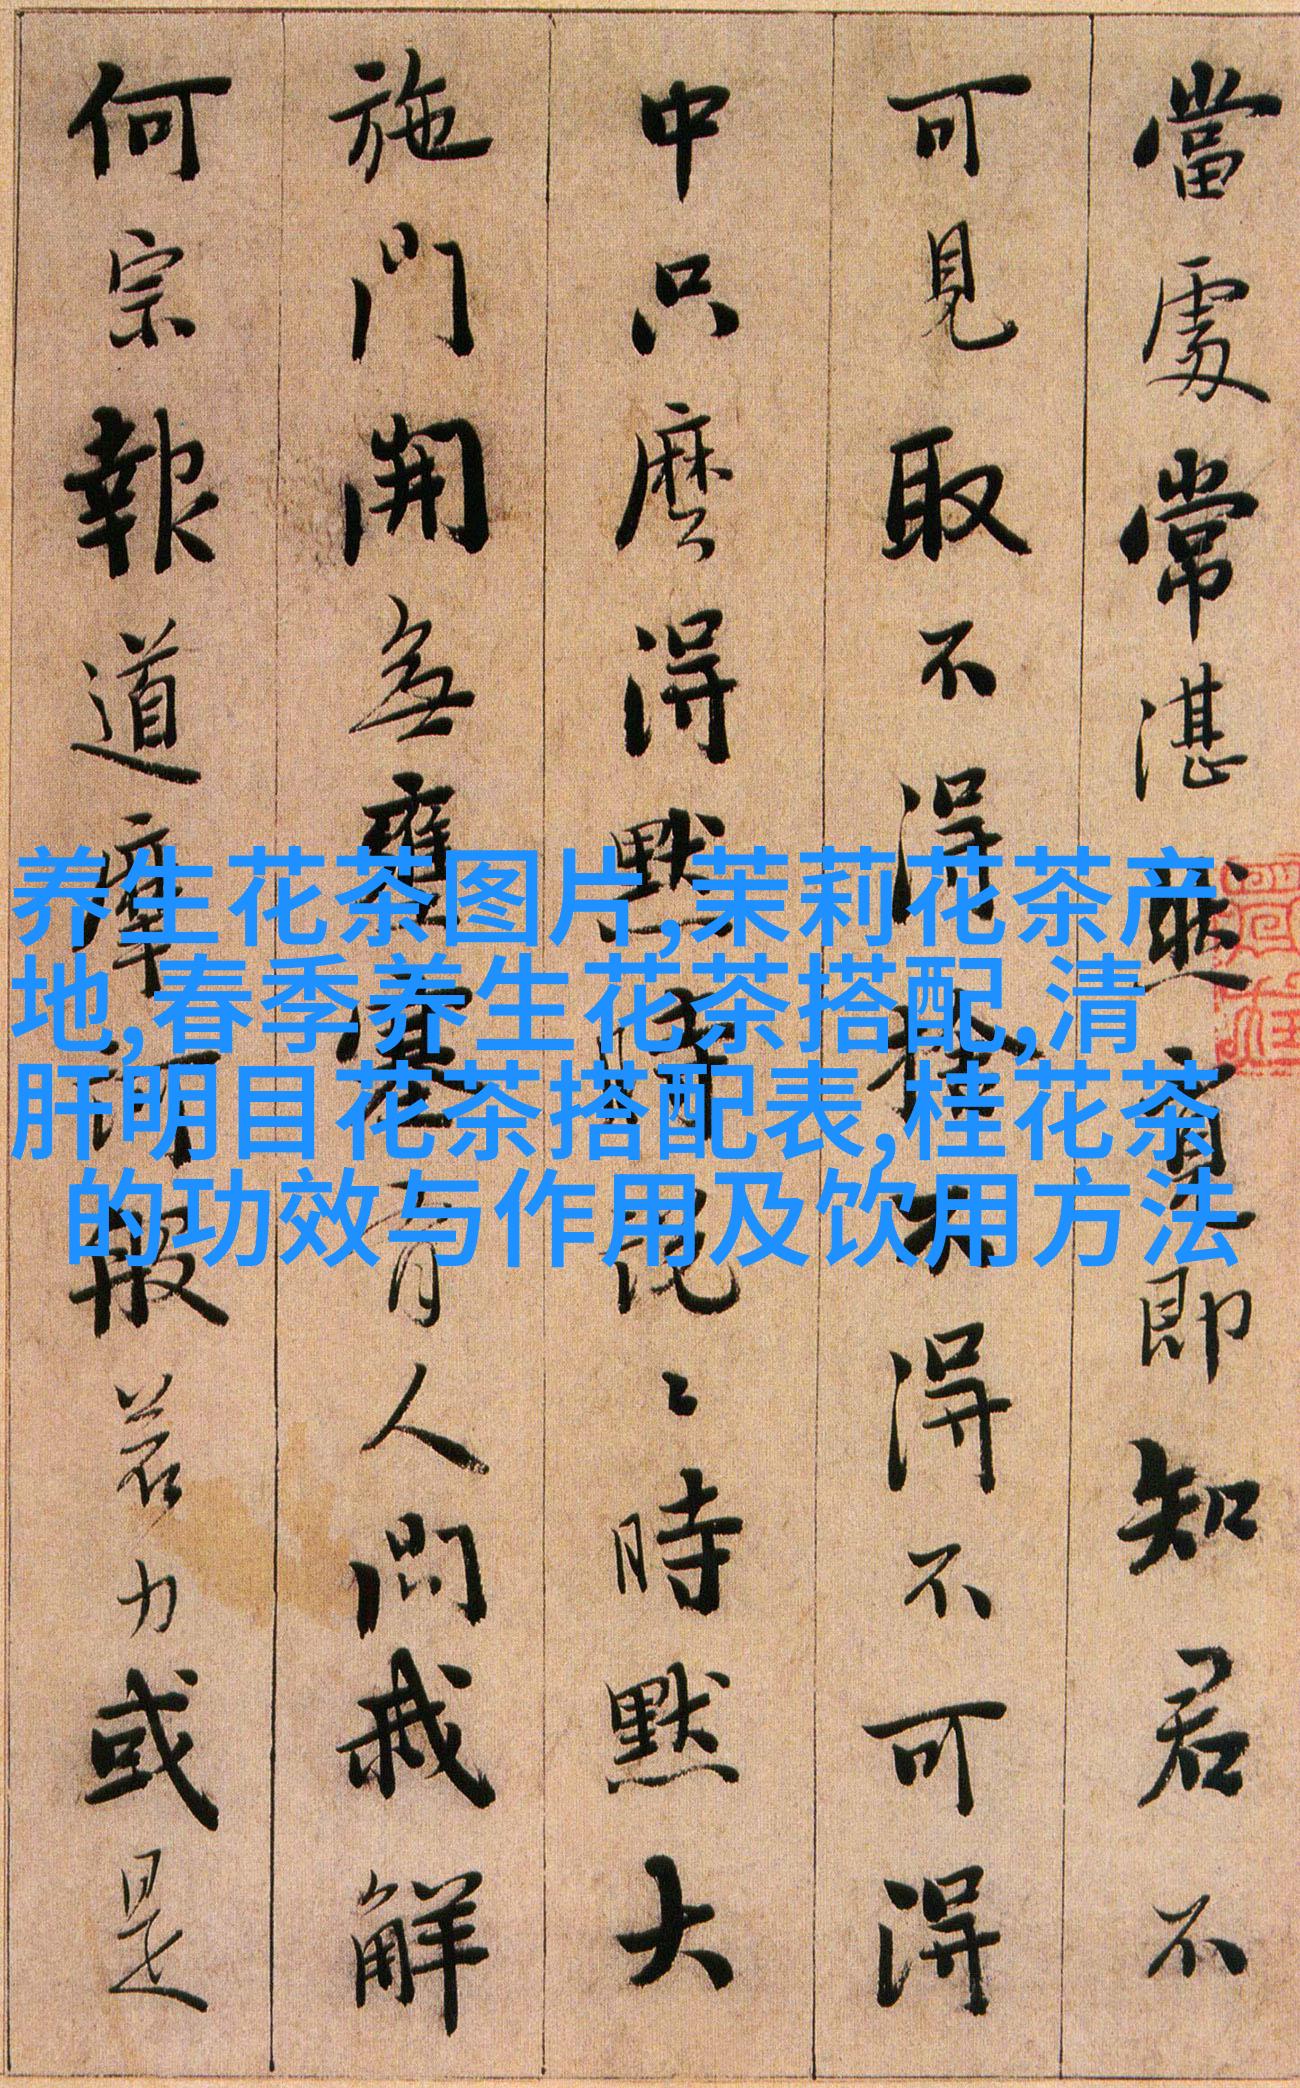 當處常湛然覓即知君不
可見取不得捨不得不可得
中只麼得默時説〻時默大
施門開無壅塞有人問我解
何宗報道摩訶般若力或是
养生花茶图片,茉莉花茶产
地,春季养生花茶搭配,清
肝明目花茶搭配表,桂花茶
的功效与作用及饮用方法